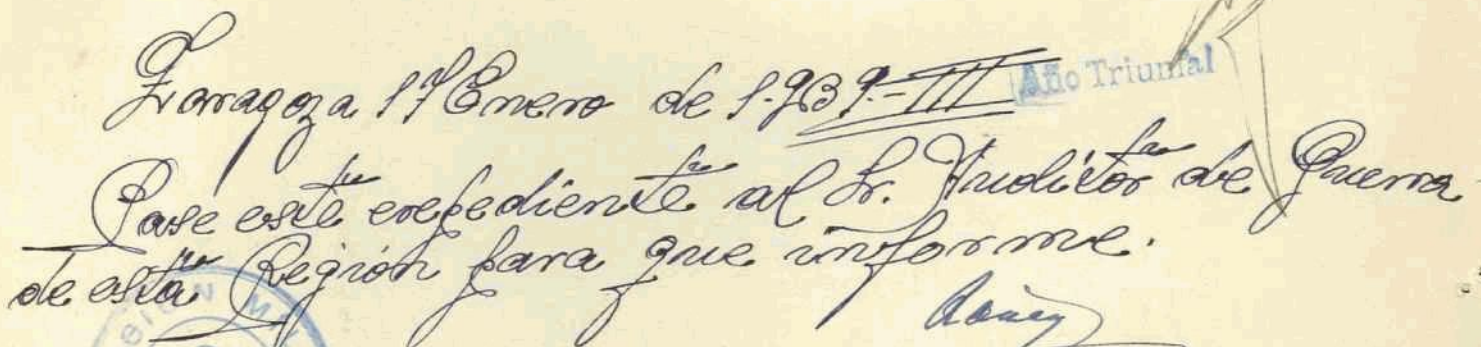 Zaragoza 17 Enero de 1.939.-III Año Triunfal
Pase este expediente al Sr. Auditor de Guerra
de esta Región para que informe.